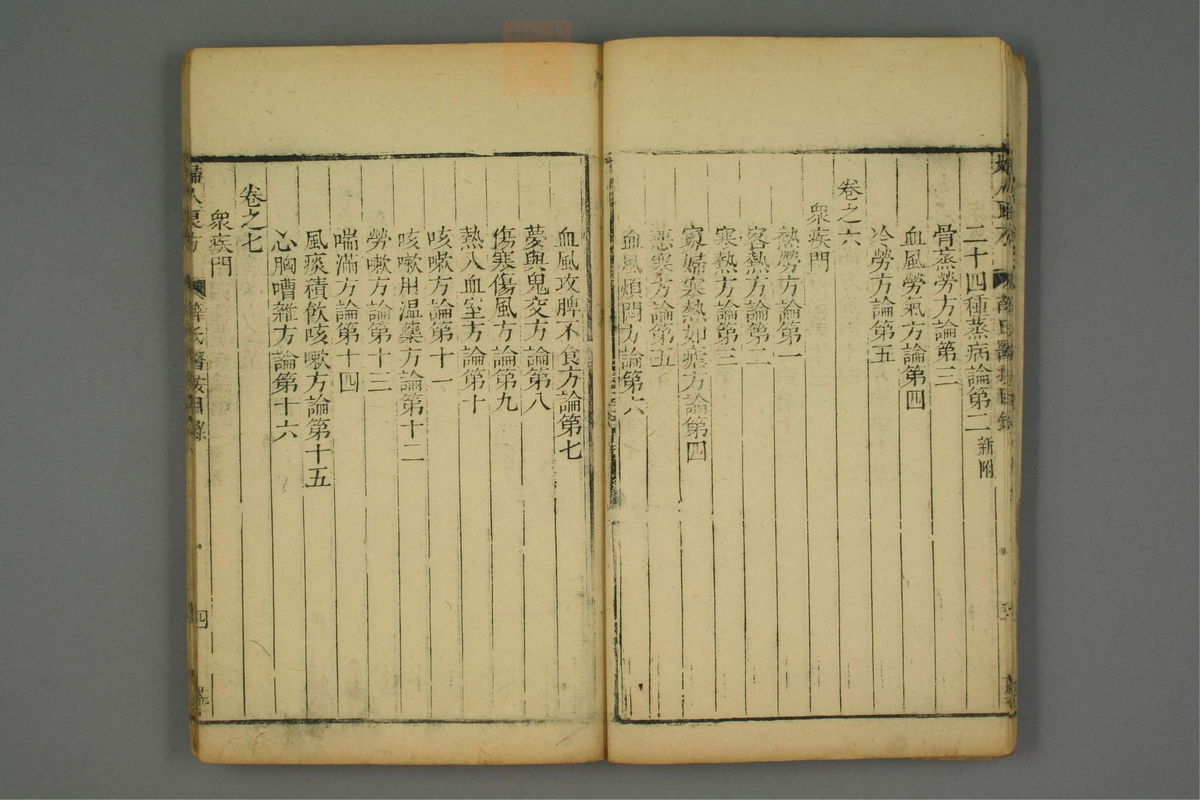 二十四種蒸病論第二 新附
骨蒸勞方論第三
血風勞氣方論第四
冷勞方論第五
卷之六
衆疾門
熱勞方論第一
客熱方論第二
寒熱方論第三
寡婦寒熱如瘧方論第四
惡寒方論第五
血風煩悶方論第六
血風攻脾不食方論第七
夢與鬼交方論第八
傷寒傷風方論第九
熱入血室方論第十
咳嗽方論第十一
咳嗽用温藥方論第十二
勞嗽方論第十三
喘滿方論第十四
風痰積飲咳嗽方論第十五
心胸嘈雜方論第十六
卷之七
衆疾門
婦人良方 薛氏醫按目錄 四